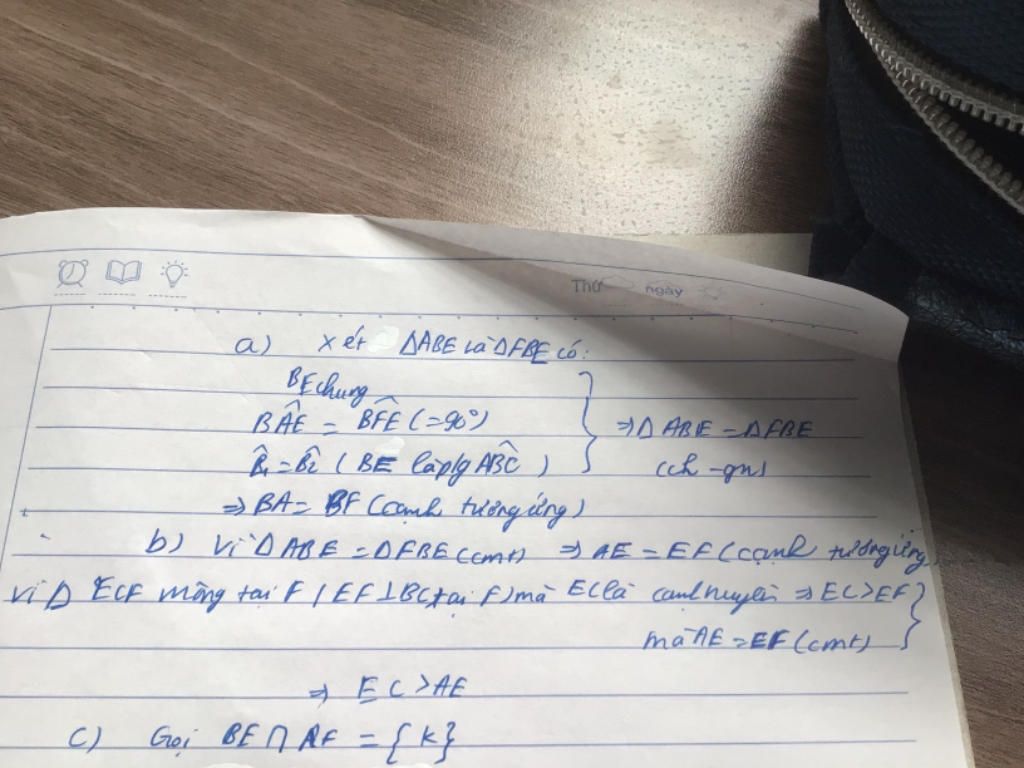 Thứ ngày
a) Xét ΔABE và ΔFBE có:
BE chung
BÂE = BF̂E (= 90°) ⇒ Δ ABE = ΔFBE
B̂₁ = B̂₂ (BE là p/g AB̂C) (ch - gn)
⇒ BA = BF (cạnh tương ứng)
b) Vì ΔABE = ΔFBE (cmt) ⇒ AE = EF (cạnh tương ứng)
Vì Δ ECF tại F (EF ⊥ BC tại F) mà EC là cạnh huyền ⇒ EC > EF
mà AE = EF (cmt)
⇒ EC > AE
c) Gọi BE ∩ AF = {K}